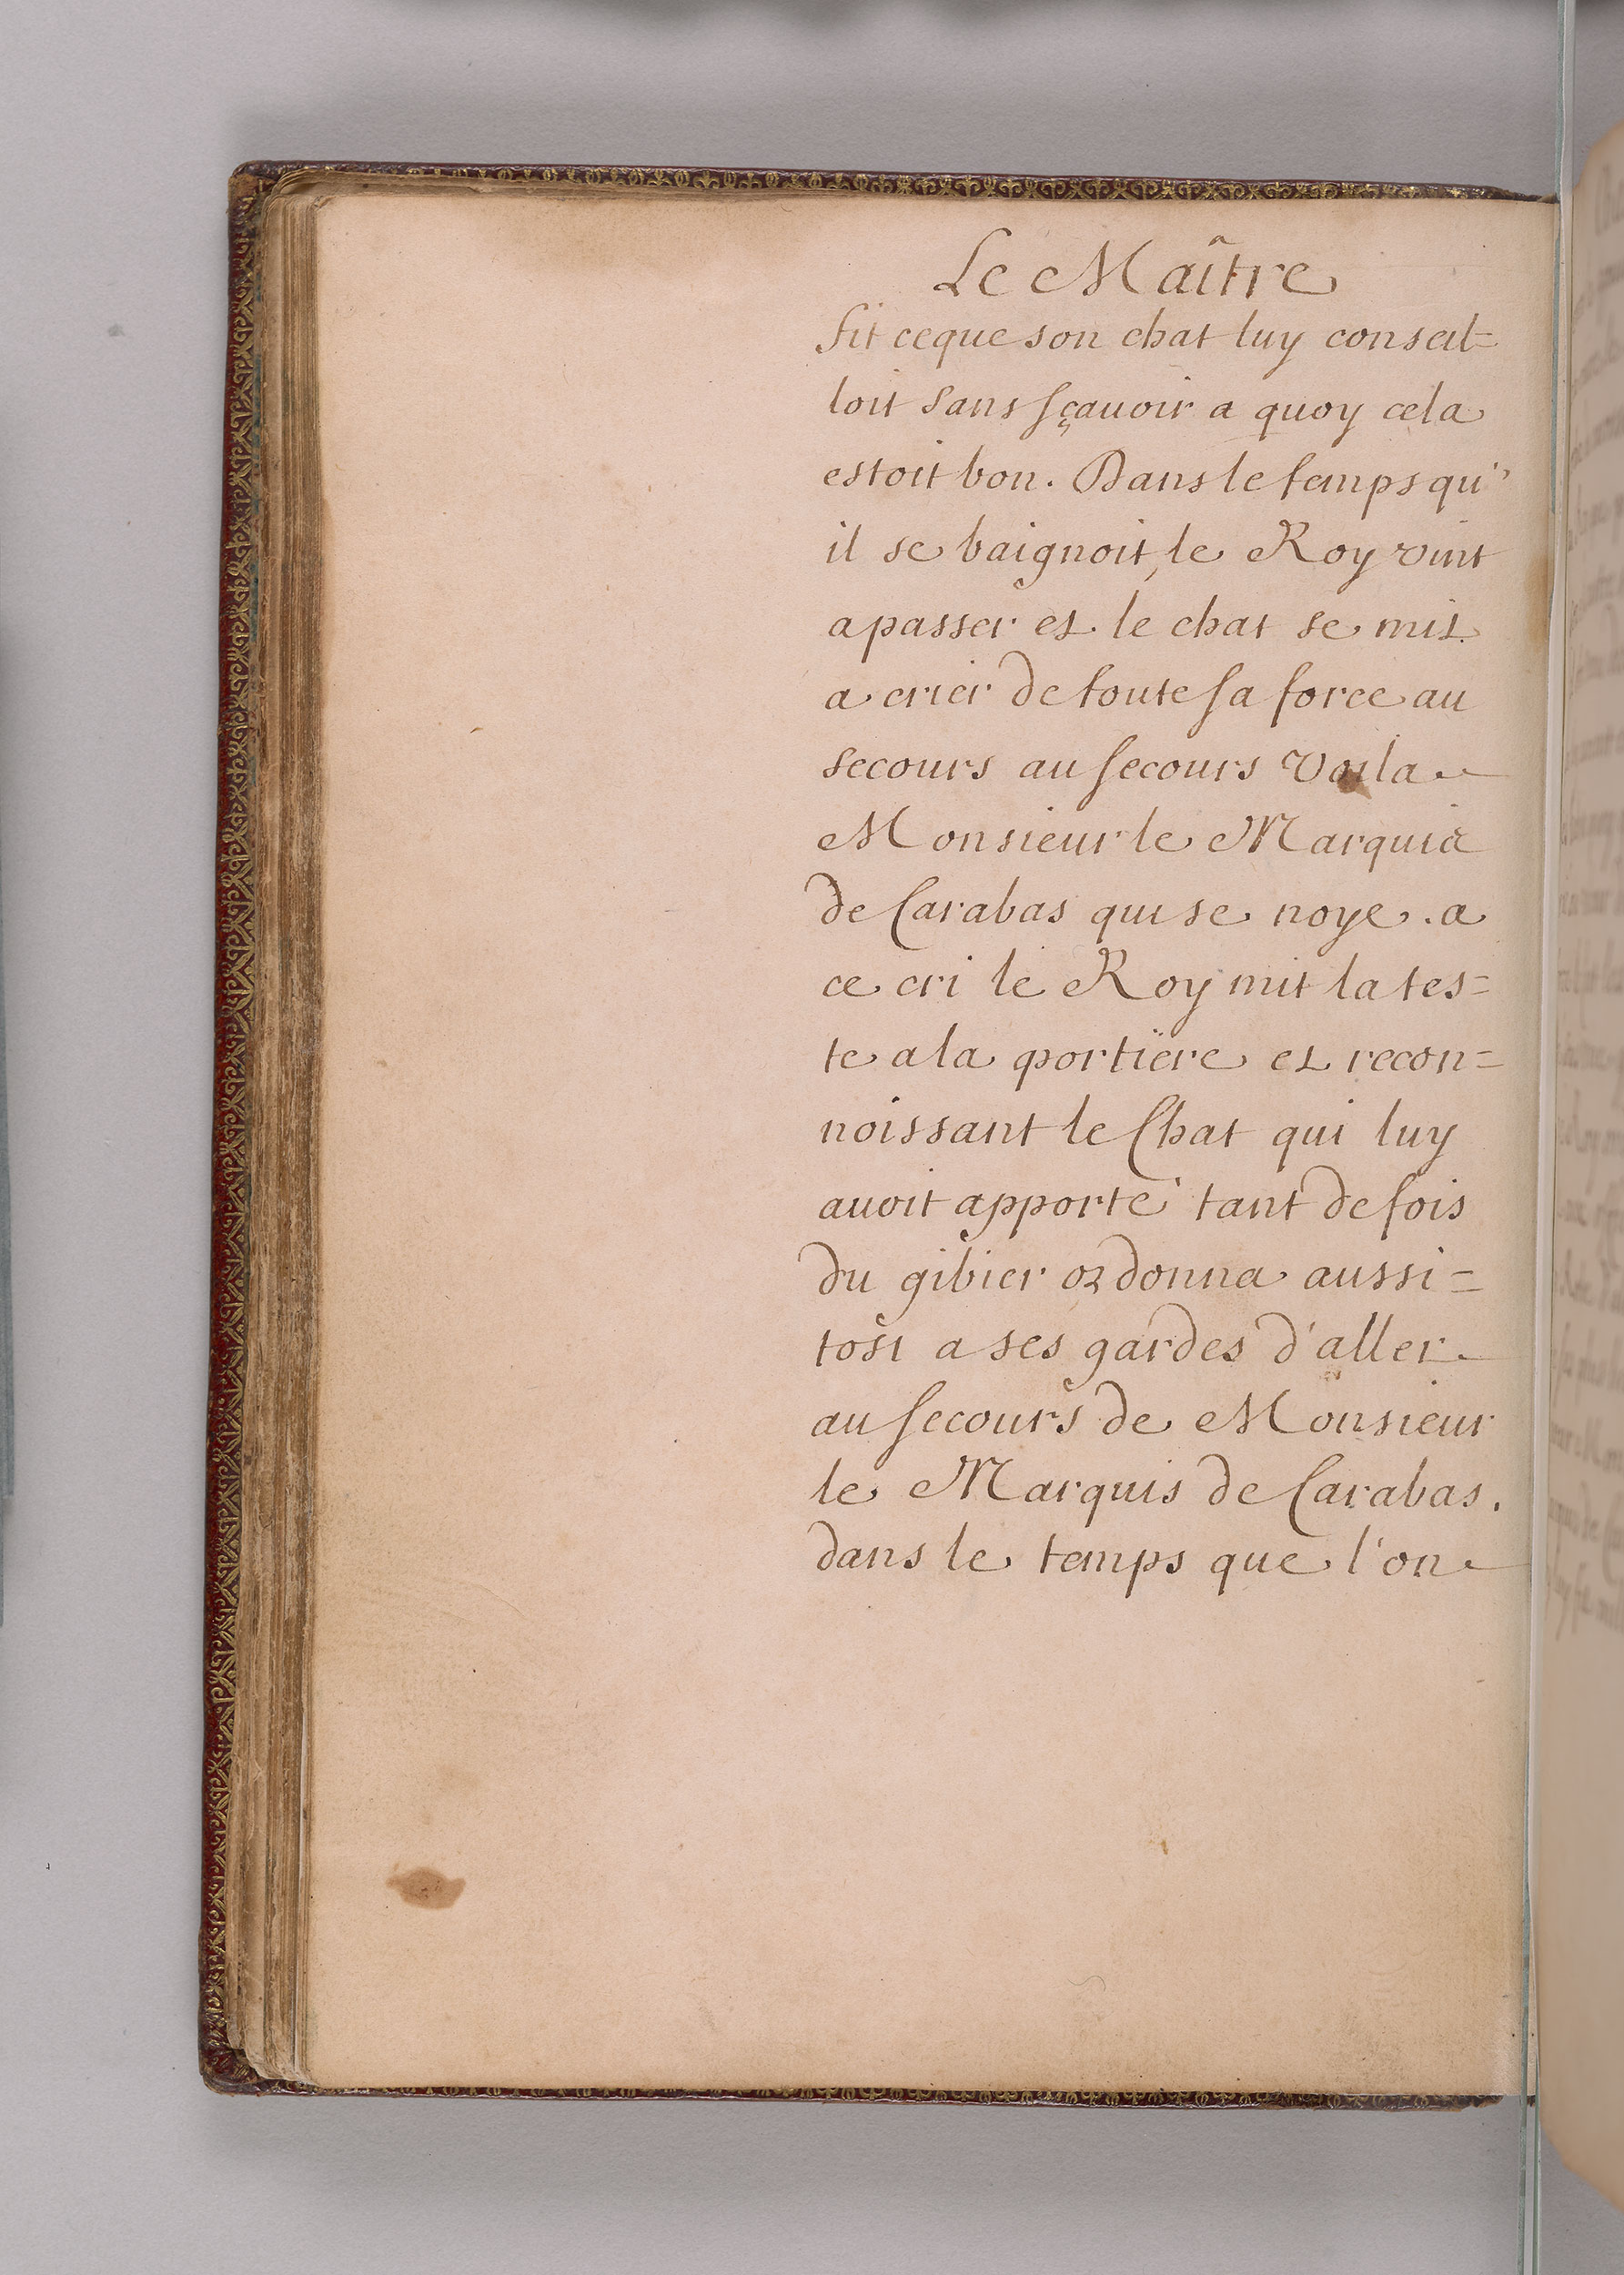 Le Maître
fit ce que son chat luy conseil=
loit sans sçauoir a quoy cela
estoit bon. Dans le temps qu'
il se baignoit, le Roy vint
a passer et le chat se mit
a crier de toute sa force au
secours au secours Voila
Monsieur le Marquis
de Carabas qui se noye. a
ce cri le Roy mit la tes=
te a la portiere et recon=
noissant le Chat qui luy
auoit apporté tant de fois
du gibier ordonna aussi=
tost a ses gardes d'aller
au secours de Monsieur
le Marquis de Carabas.
dans le temps que l'on